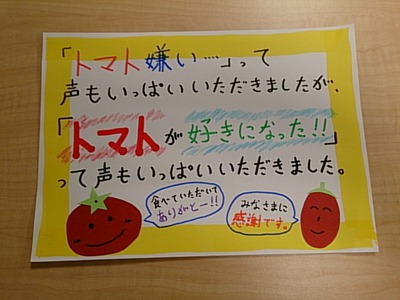 「トマト嫌い……」って
声もいっぱいいただきましたが、
「トマトが好きになった!!」
って声もいっぱいいただきました。
食べていただいて
ありがとー!!
みなさまに
感謝です。